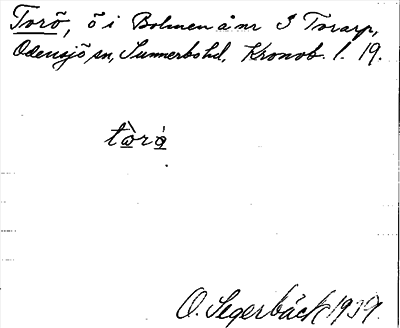 Torö, ö i Bolmen å nr 3 Torarp,
Odensjö sn, Sunnerbo hd, Kronob. l. 19.
tòró
O. Segerbäck 1939.